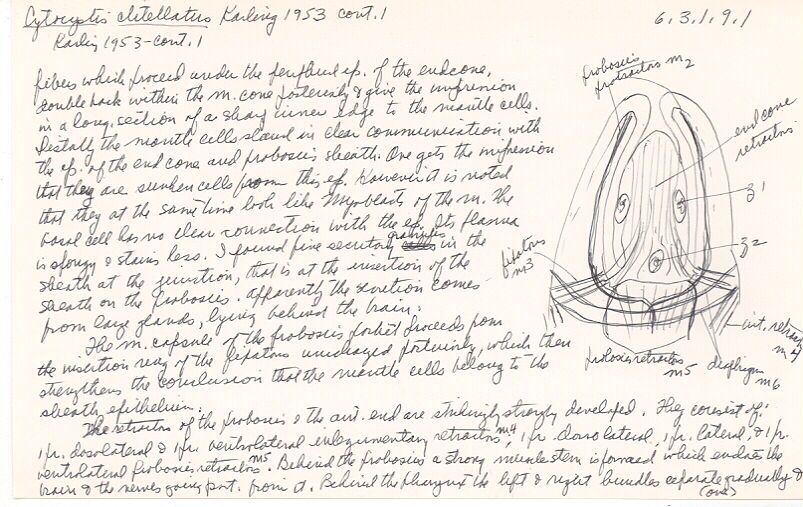 Cytocystis clitellatus Karling 1953 cont. 1
6.3.1.9.1
Karling 1953-cont. 1
fibers which proceed under the peripheral ep. of the endcone,
double back within the m. cone posteriorly & give the impression
in a long. section of a sharp inner edge to the mantle cells.
Distally the mantle cells stand in clear communication with
the ep. of the end cone and proboscis sheath. One gets the impression
that they are sunken cells from this ep. However it is noted
that they at the same time look like myoblasts of the m. The
basal cell has no clear connection with the ep. Its plasma
is spongy & stains less. I found fine secretory granules in the
sheath at the junction, that is at the insertion of the
sheath on the proboscis. Apparently the secretion comes
from large glands, lying behind the brain.
The m. capsule of the proboscis proceeds from
the insertion ring of the fixators unchanged, which then
strengthens the conclusion that the mantle cells belong to the
sheath epithelium.
The retractors of the proboscis & the ant. end are strikingly strongly developed. They consist of:
1 pr. dorsolateral & 1 pr. ventrolateral integumentary retractors m4, 1 pr. dorsolateral, 1 pr. lateral, & 1 pr.
ventrolateral proboscis retractors m5. Behind the proboscis a strong muscle stem is formed which encloses the
brain & the nerves going post. from it. Behind the pharynx the left & right bundles separate gradually &
(over)
proboscis
protractors m2
end cone
retractors
z1
z2
fixators
m3
int. retractors
m4
proboscis retractors
m5
diaphragm
m6